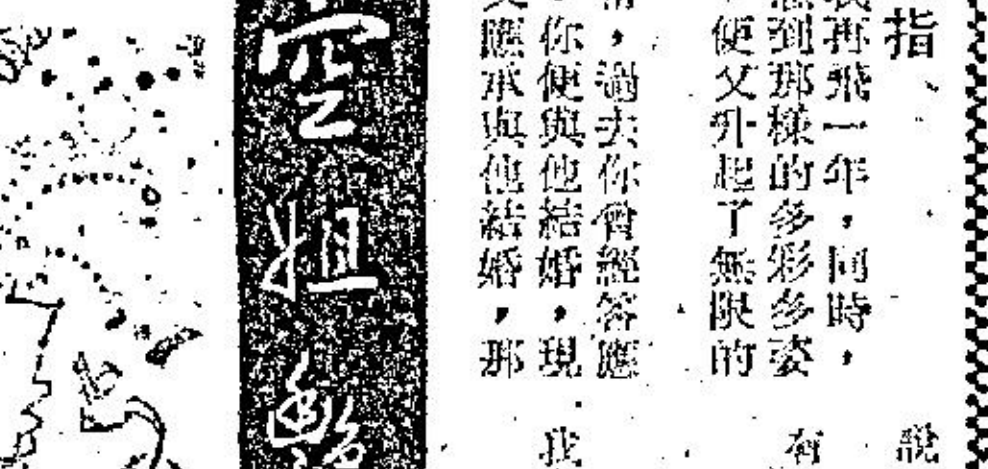 指
說
再飛一年，同時，
到那樣的多彩多姿
有
便又升起了無限的
，過去你曾經答應
，你便與他結婚，現
我
應承與他結婚，那
空姐